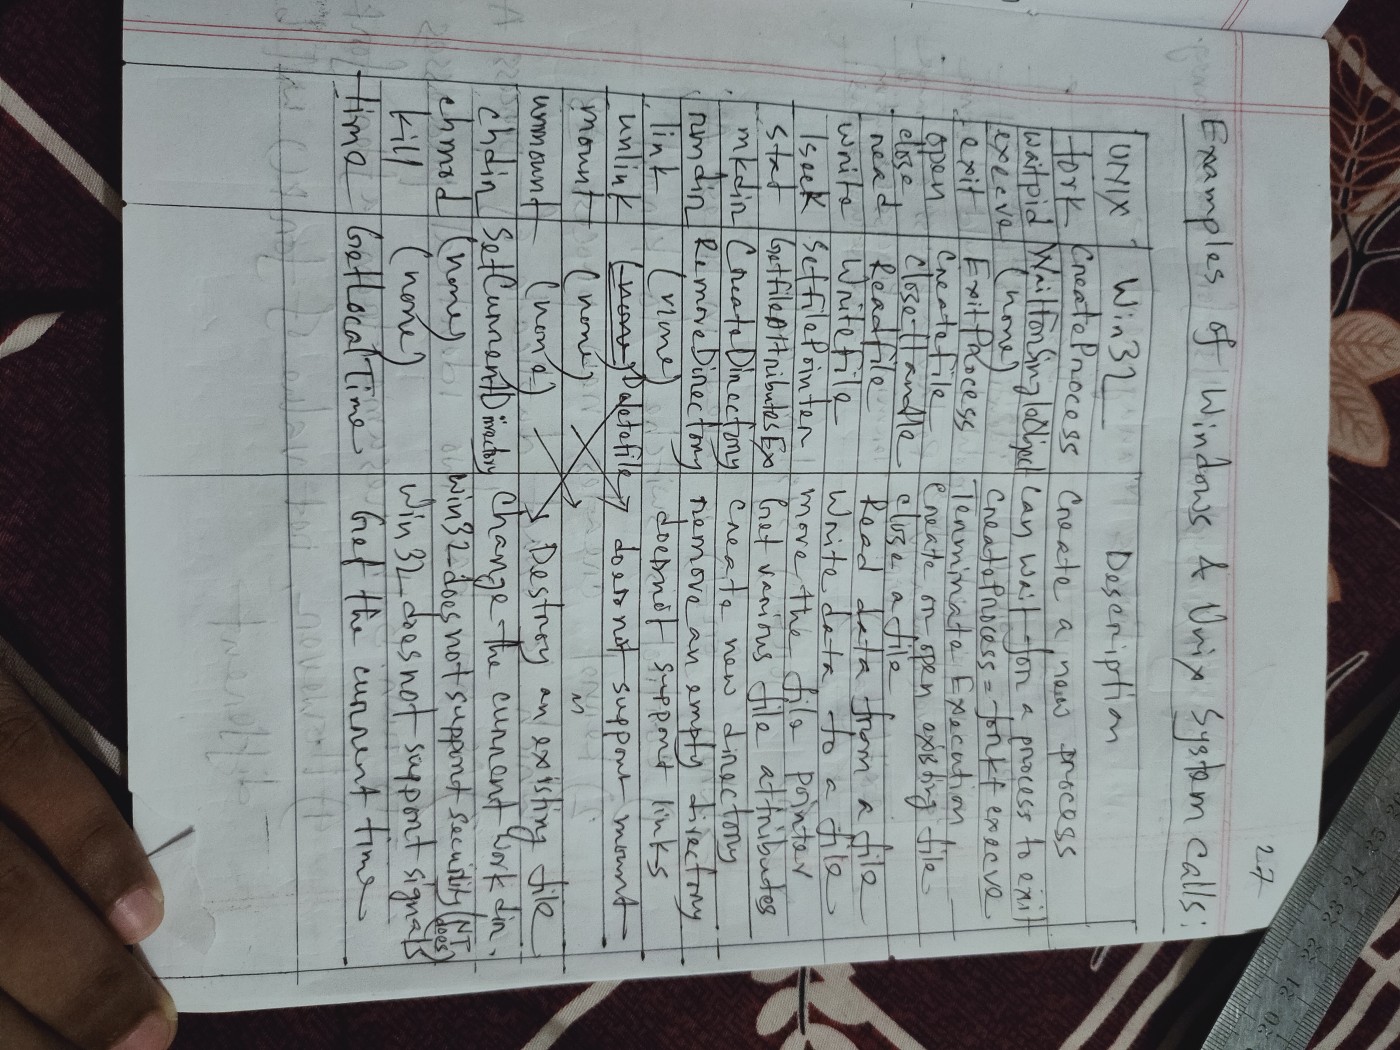 27
Examples of Windows & Unix System calls:
UNIX Win32 Description
fork CreateProcess Create a new process
waitpid WaitForSingleObject Can wait for a process to exit
execve (none) CreateProcess = fork + execve
exit ExitProcess Terminate Execution
open CreateFile Create or open existing file
close CloseHandle close a file
read ReadFile Read data from a file
write WriteFile Write data to a file
lseek SetFilePointer move the file pointer
stat GetFileAttributesEx Get various file attributes
mkdir CreateDirectory Create new directory
rmdir RemoveDirectory remove an empty directory
link (none) does not support links
unlink (none) DeleteFile does not support mount
mount (none) "
umount (none) Destroy an existing file
chdir SetCurrentDirectory Change the current work dir.
chmod (none) Win32 does not support security (NT does)
kill (none) Win32 does not support signals
time GetLocalTime Get the current time